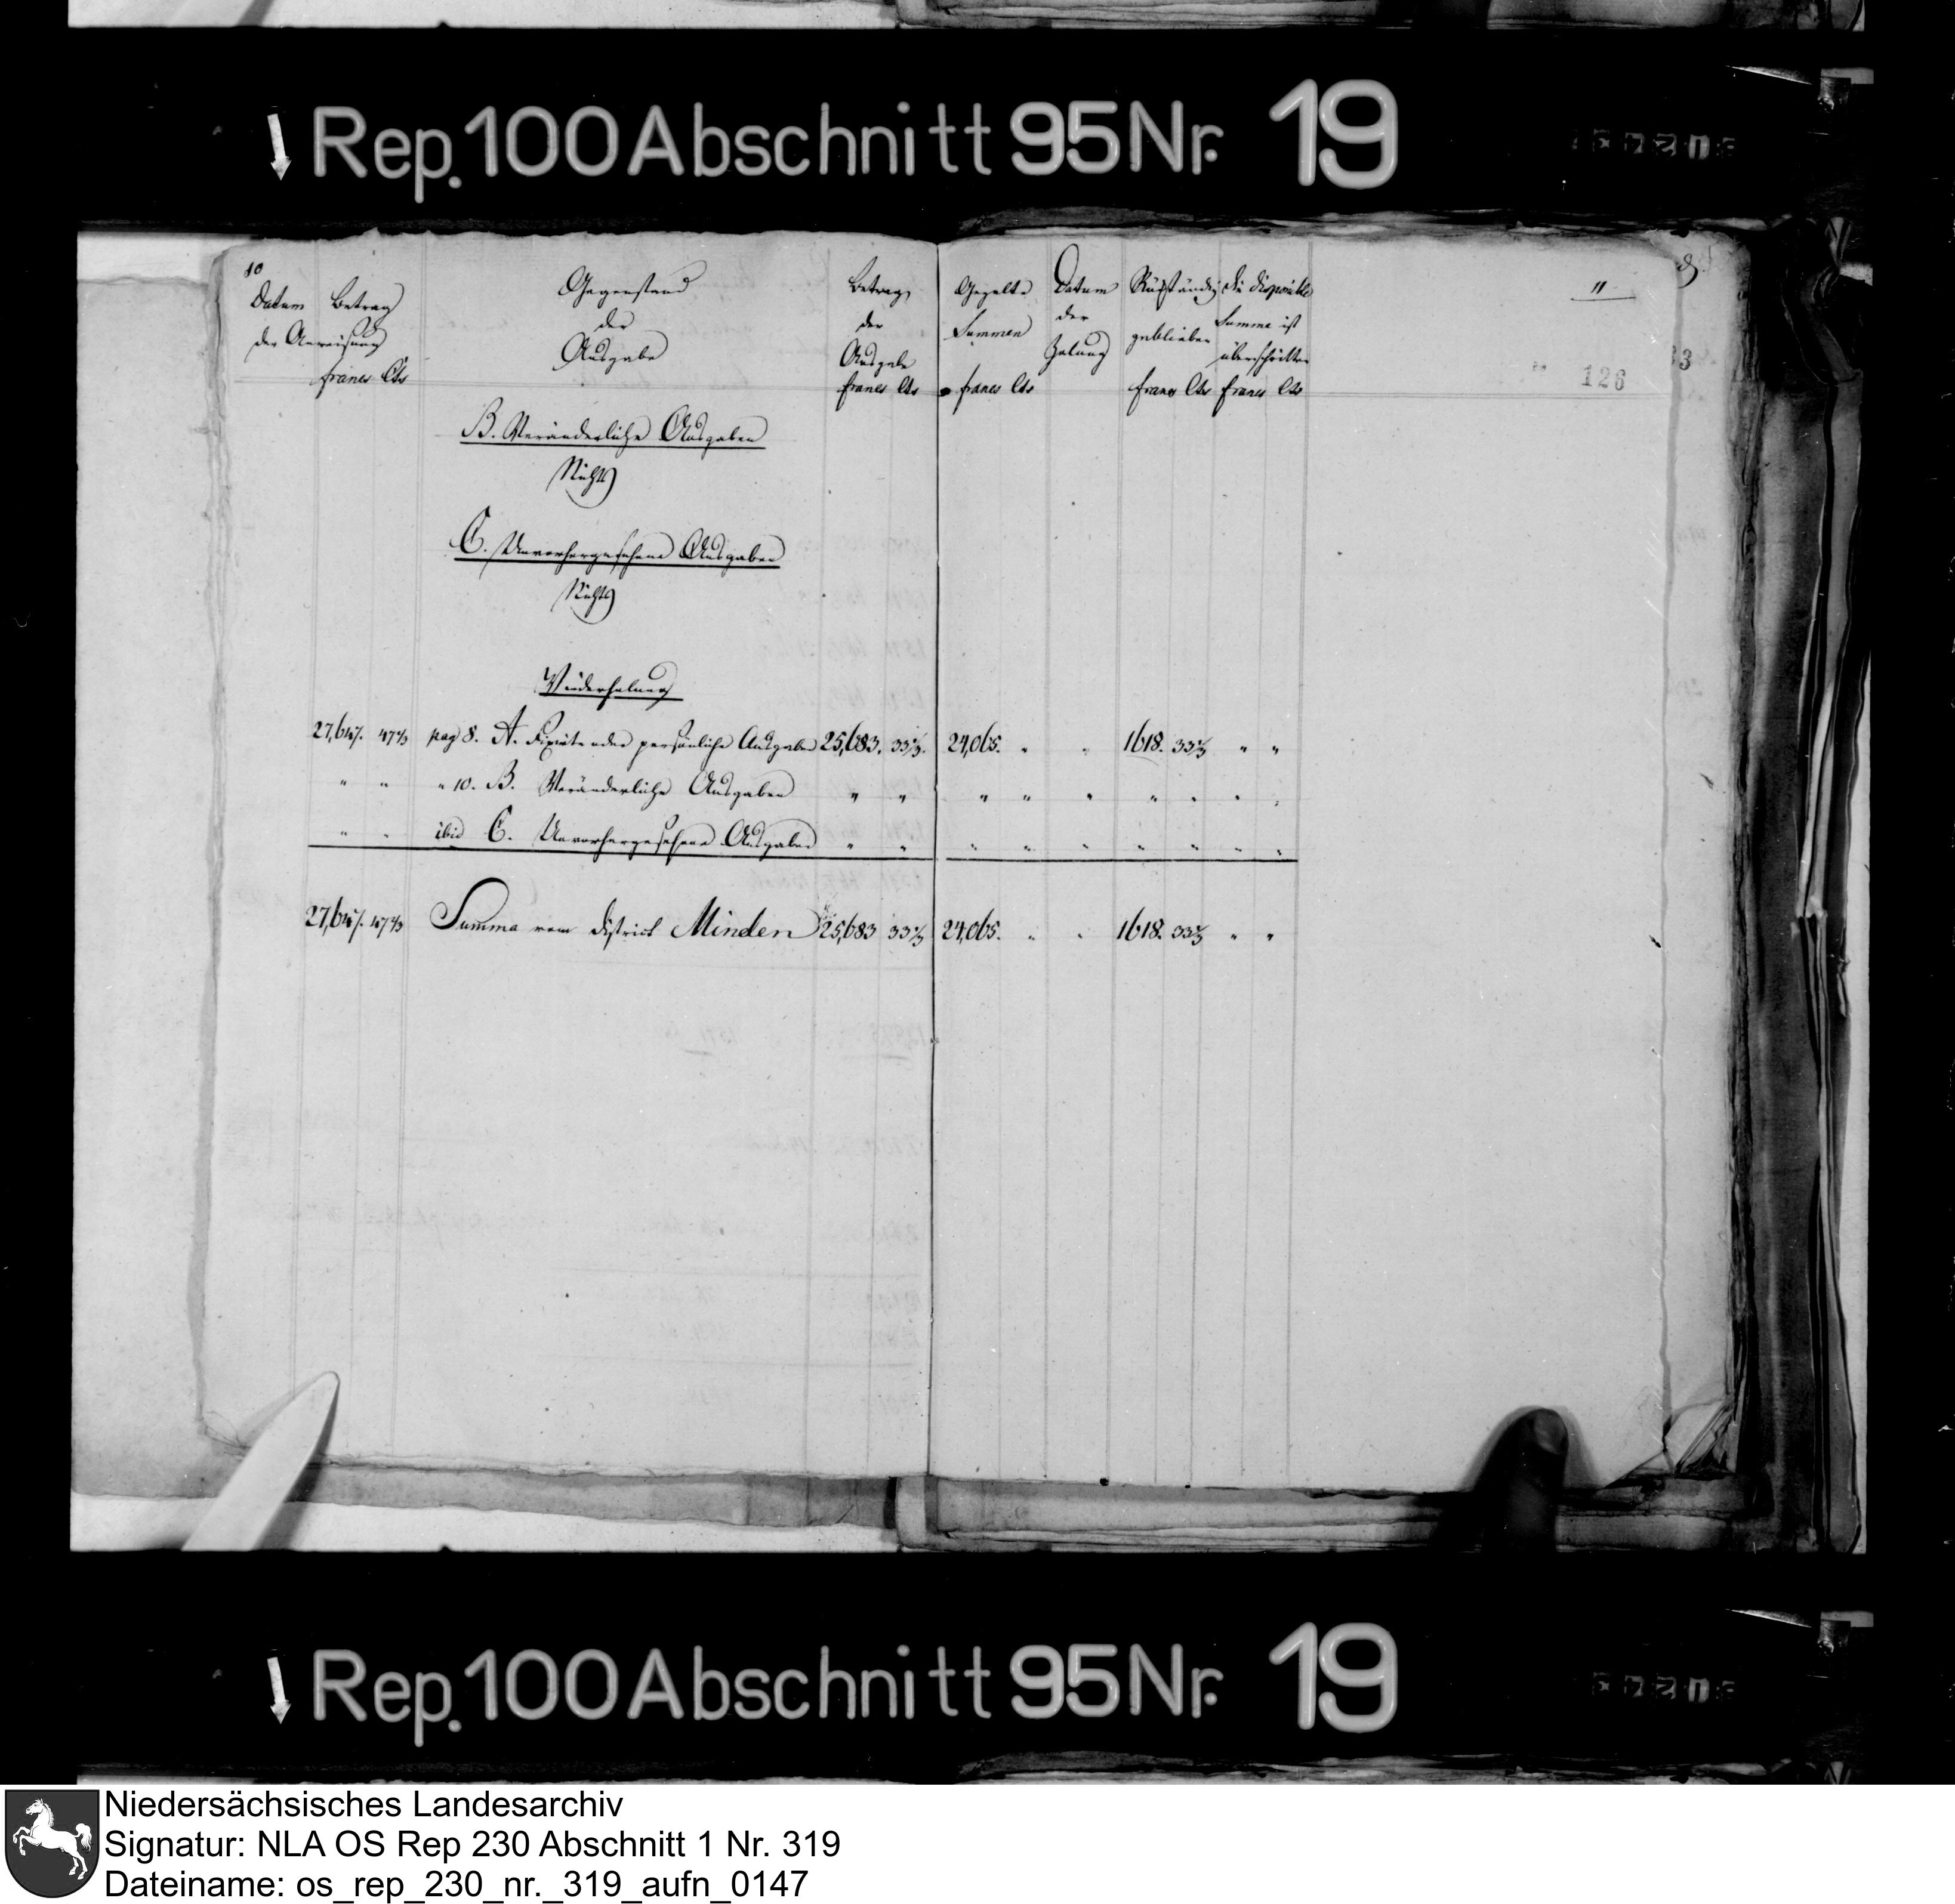 Rep. 100 Abschnitt 95 Nr. 19
10
Datum Betrag
der Anweisung
francs Cts
Gegenstand
der
Ausgabe
Betrag
der
Ausgabe
francs Cts
Gezalte
Summen
francs Cts
Datum
der
Zalung
Rükständig
geblieben
francs Cts
die disponible
Summe ist
überschritten
francs Cts
11
126
33
B. Veränderliche Ausgaben
Nichts
C. Unvorhergesehene Ausgaben
Nichts
Wiederholung
pag 8. A. Fixirte oder persönliche Ausgaben 25,683. 33⅓. 24,065. " " 1618. 33⅓ " "
" " " 10. B. Veränderliche Ausgaben " " " " " " " " "
" " ibid C. Unvorhergesehene Ausgaben " " " " " " " " "
Summa vom District Minden 25,683 33⅓ 24,065. " " 1618. 33⅓ " "
Rep. 100 Abschnitt 95 Nr. 19
Niedersächsisches Landesarchiv
Signatur: NLA OS Rep 230 Abschnitt 1 Nr. 319
Dateiname: os_rep_230_nr._319_aufn_0147